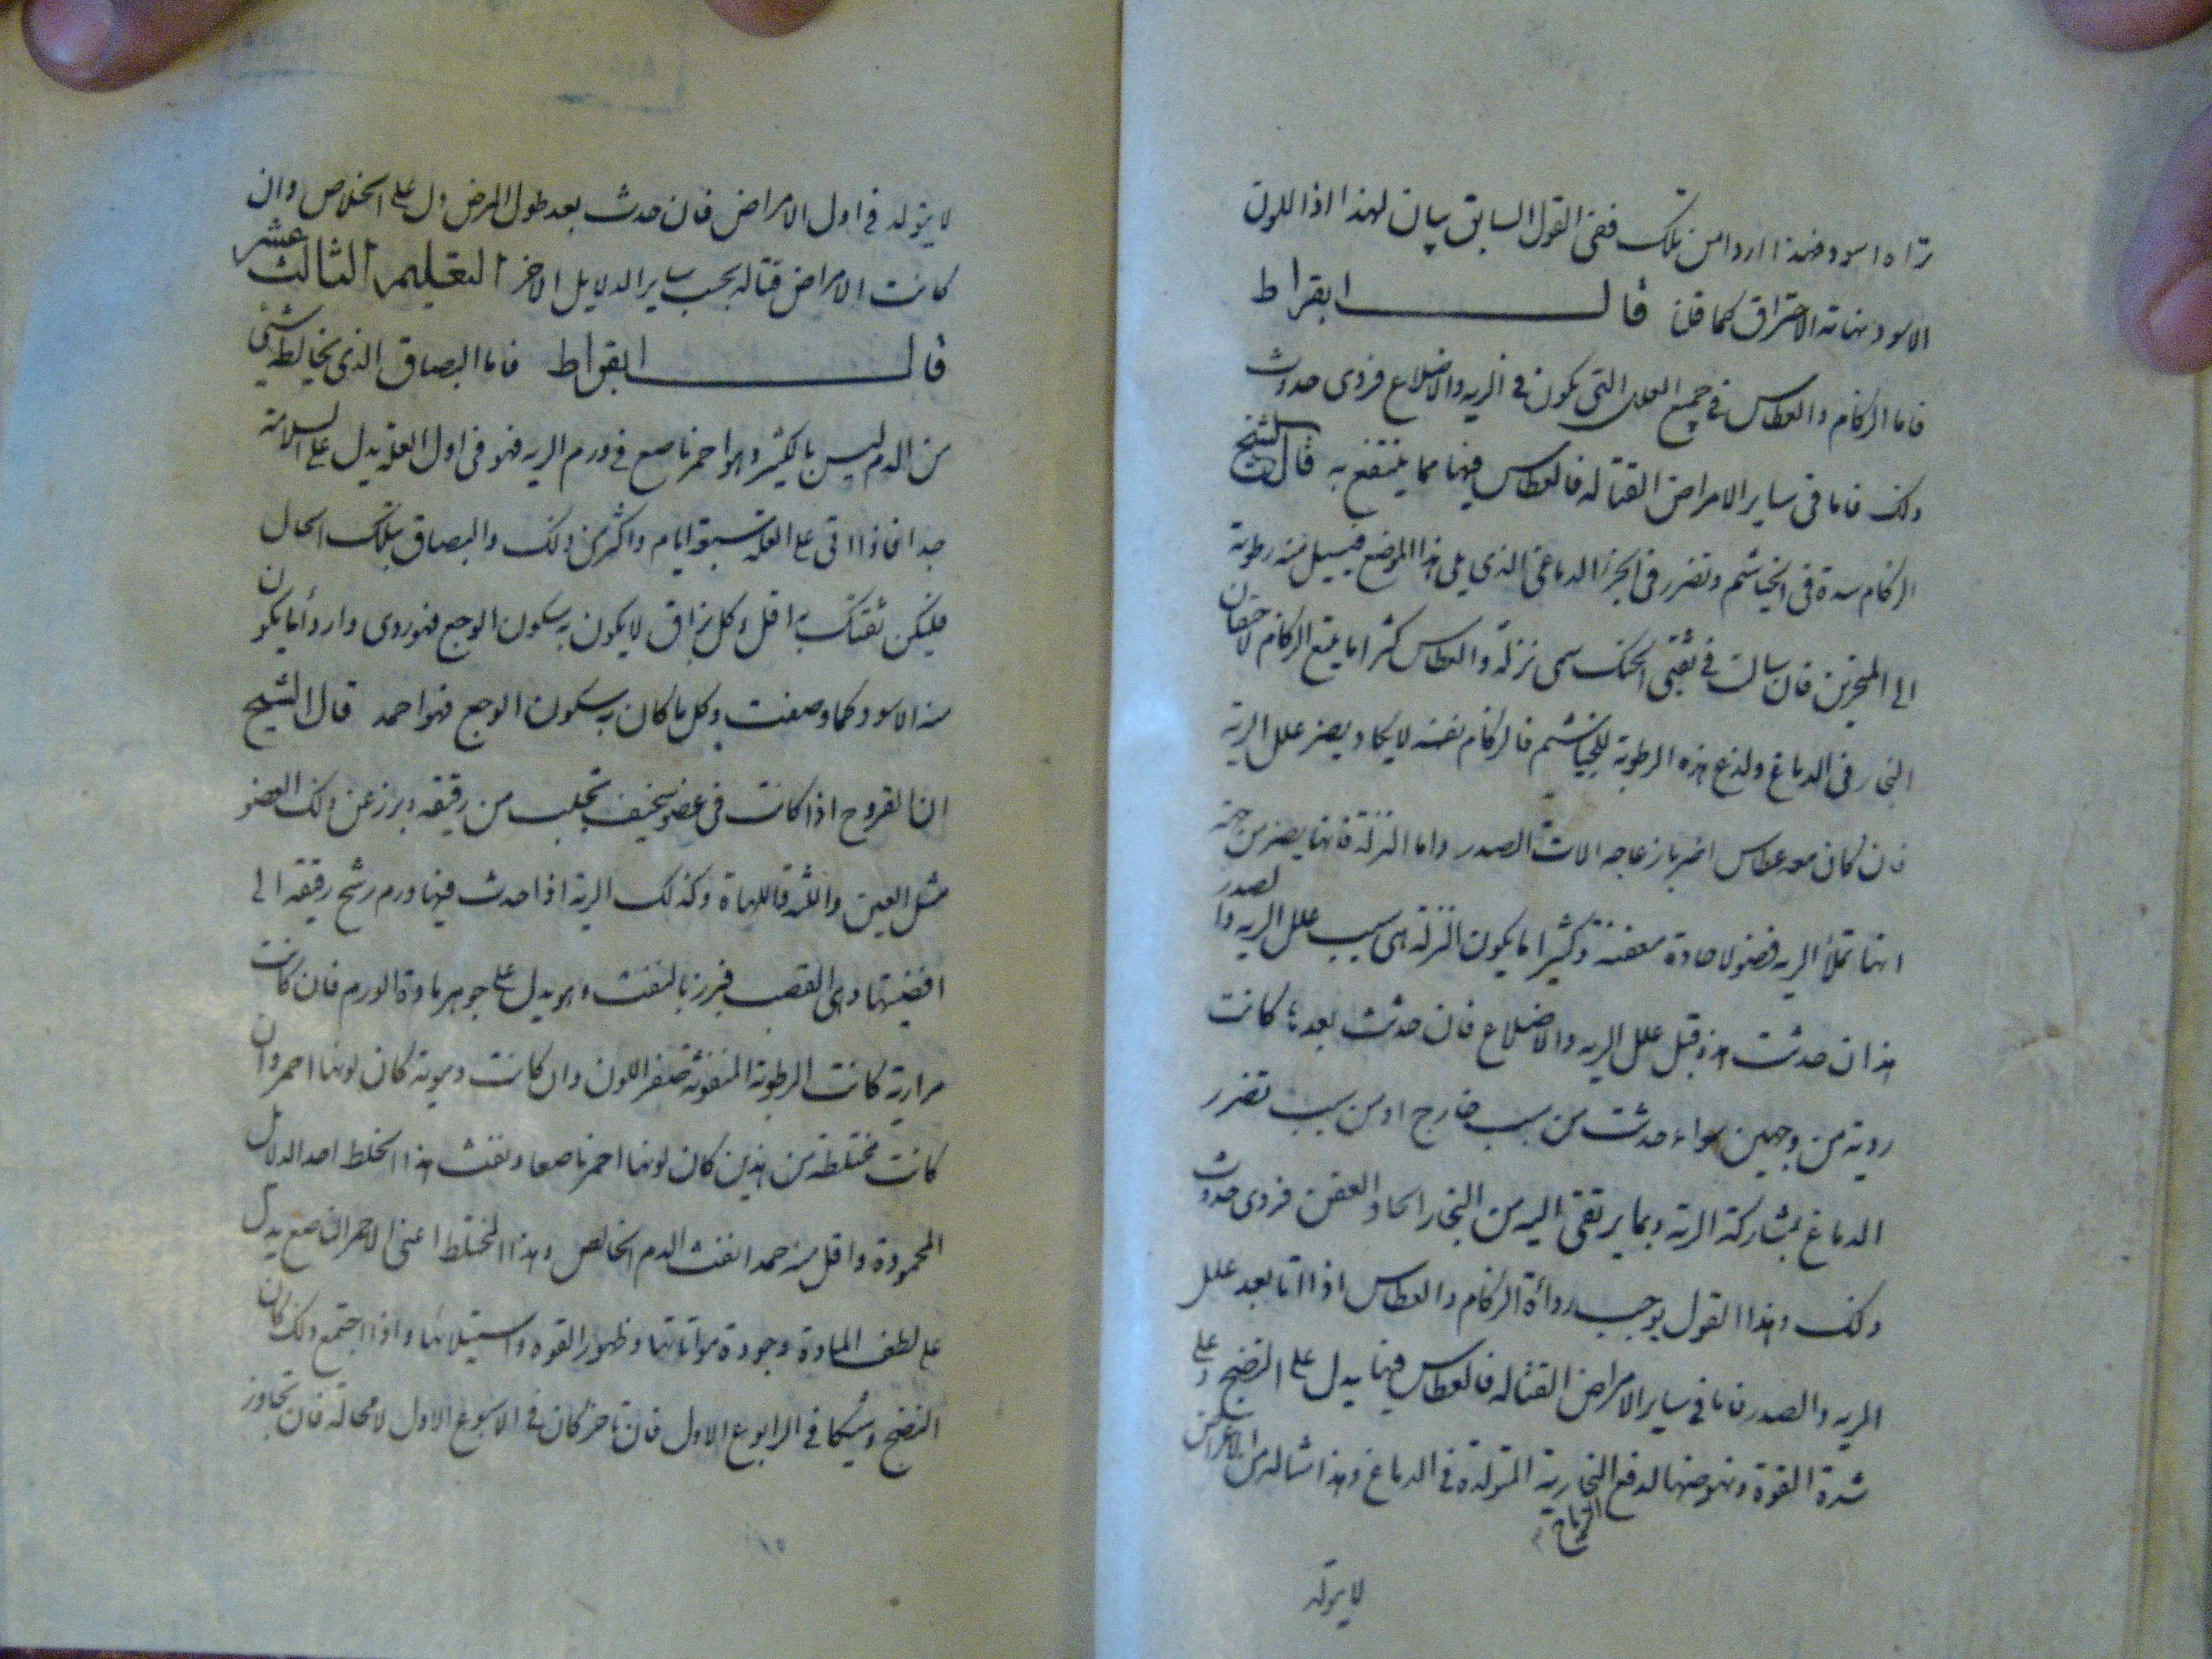 تراه اسود فهذا اردا من تلك ففى القول السابق بيان لهذا اذ اللون
الاسود نهاية الاحتراق كما قلنا قال ابقراط
فاما الزكام والعطاس في جميع العلل التى يكون في الريه والاضلاع فردى حدوث
ذلك فاما فى ساير الامراض القتاله فالعطاس فيها مما ينتفع به قال الشيخ
الزكام سدة فى الخياشيم وتضرر فى الجزء الدماغى الذي يلى هذا الموضع فيسيل منه رطوبة
الى المنخرين فان سالت في ثقبتى الحنك سمى نزلة والعطاس كثيرا ما يتبع الزكام لاحتقان
البخار فى الدماغ ولذع هذه الرطوبة للخياشيم فالزكام نفسه لا يكاد يضر علل الرية
فان كان معه عطاس اضر بازعاجه الات الصدر واما النزلة فانها يضر من جهة
انها تملأ الريه فضولا حادة معفنة وكثيرا ما يكون النزلة هى سبب علل الريه والصدر
هذا ان حدثت هذه قبل علل الريه والاضلاع فان حدثت بعدها كانت
ردية من وجهين سواء حدثت من سبب خارج او من سبب تضرر
الدماغ بمشاركة الرية وبما يرتقى اليه من البخار الحاد العفن فردى حدوث
ذلك وهذا القول يوجب رداءة الزكام والعطاس اذا اتا بعد علل
الريه والصدر فاما في ساير الامراض القتاله فالعطاس فيها يدل على النضج وعلى
شدة القوة ونهوضها لدفع البخارية المتولدة في الدماغ وهذا مثاله من الاعراض
الرياح
لا يتولد
لا يتولد في اول الامراض فان حدث بعد طول المرض دل على الخلاص وان
كانت الامراض قتاله بحسب ساير الدلايل الاخر التعليم الثالث عشر
قال ابقراط فاما البصاق الذى يخالطه شئ
من الدم ليس بالكثير وهو احمر ناصع في ورم الريه فهو فى اول العله يدل على السلامة
جدا فاذا اتى على العلة سبعة ايام واكثر من ذلك والبصاق بتلك الحال
فليكن ثقتك به اقل وكل بزاق لا يكون به سكون الوجع فهو ردى واردأ ما يكون
منه الاسود كما وصفت وكل ما كان به سكون الوجع فهو احمد قال الشيخ
ان القروح اذا كانت فى عضو سخيف تحلب من رقيقه وبرز عن ذلك العضو
مثل العين واللثة فاللهاة وكذلك الرية اذا حدث فيها ورم رشح رقيقه الى
افضيتها وهى القصب فبرز بالنفث وهو يدل على جوهر مادة الورم فان كانت
مرارية كانت الرطوبة المنفوثة صفر اللون وان كانت دموية كان لونها احمر وان
كانت مختلطة من هذين كان لونها احمر ناصعا ونفث هذا الخلط احد الدلايل
المحمودة واقل منه حمدا نفث الدم الخالص وهذا المختلط اعنى الاحمر الناصع يدل
على لطف المادة وجودة مواتاتها وظهور القوه واستيلائها واذا اجتمع ذلك كان
النضج وشيكا في الرابوع الاول فان تاخر كان في الاسبوع الاول لا محالة فان تجاوز